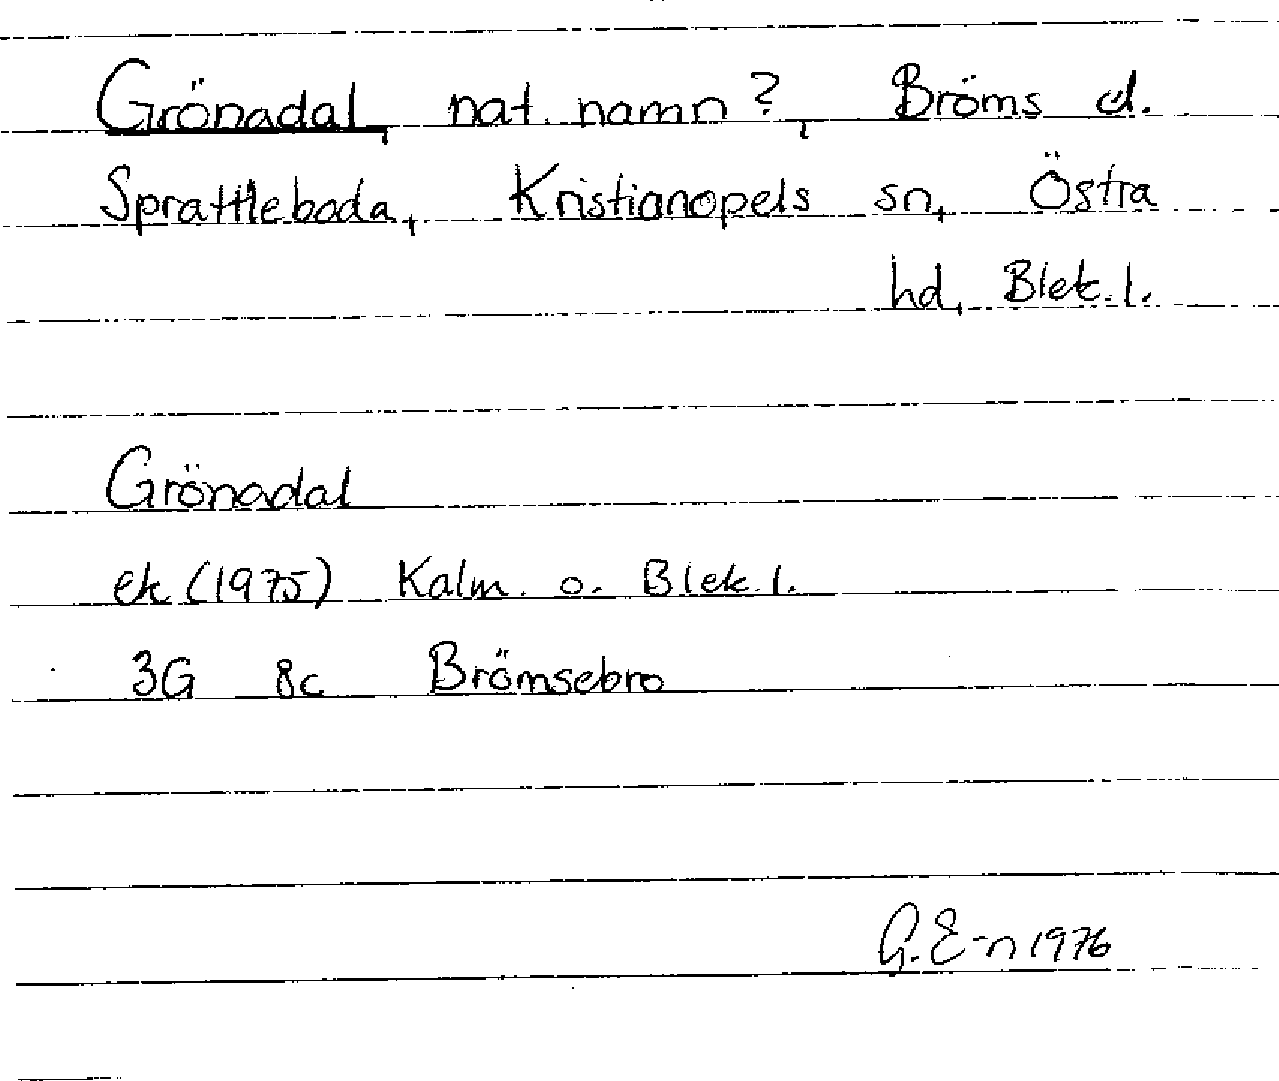 Grönadal, nat. namn?, Bröms d.
Sprattleboda, Kristianopels sn, Östra
hd, Blek. l.
Grönadal
ek (1975) Kalm. o. Blek. l.
3G 8c Brömsebro
G. E-n 1976